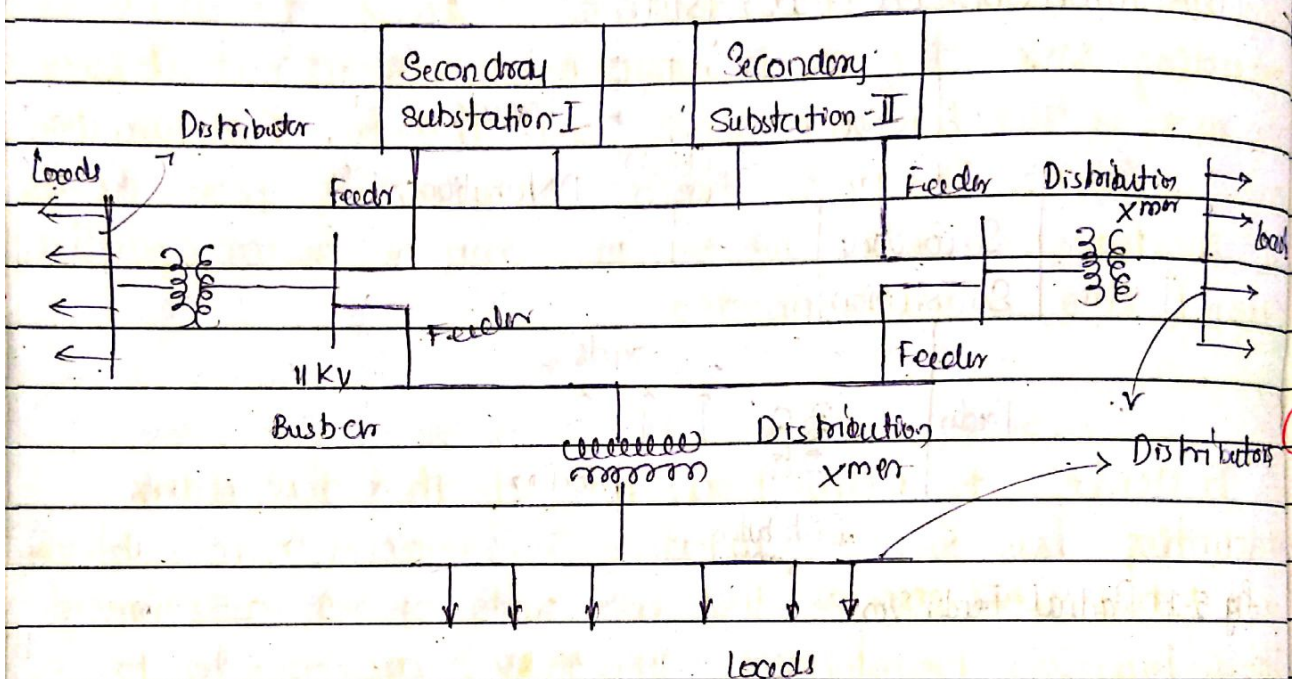 Secondray
substation-I
Secondary
Substation-II
Distributor
Loads
Feedr
Feeder
Distribution
xmer
load
Feeder
Feeder
11 KV
Busbar
Distribution
xmer
Distributors
loads